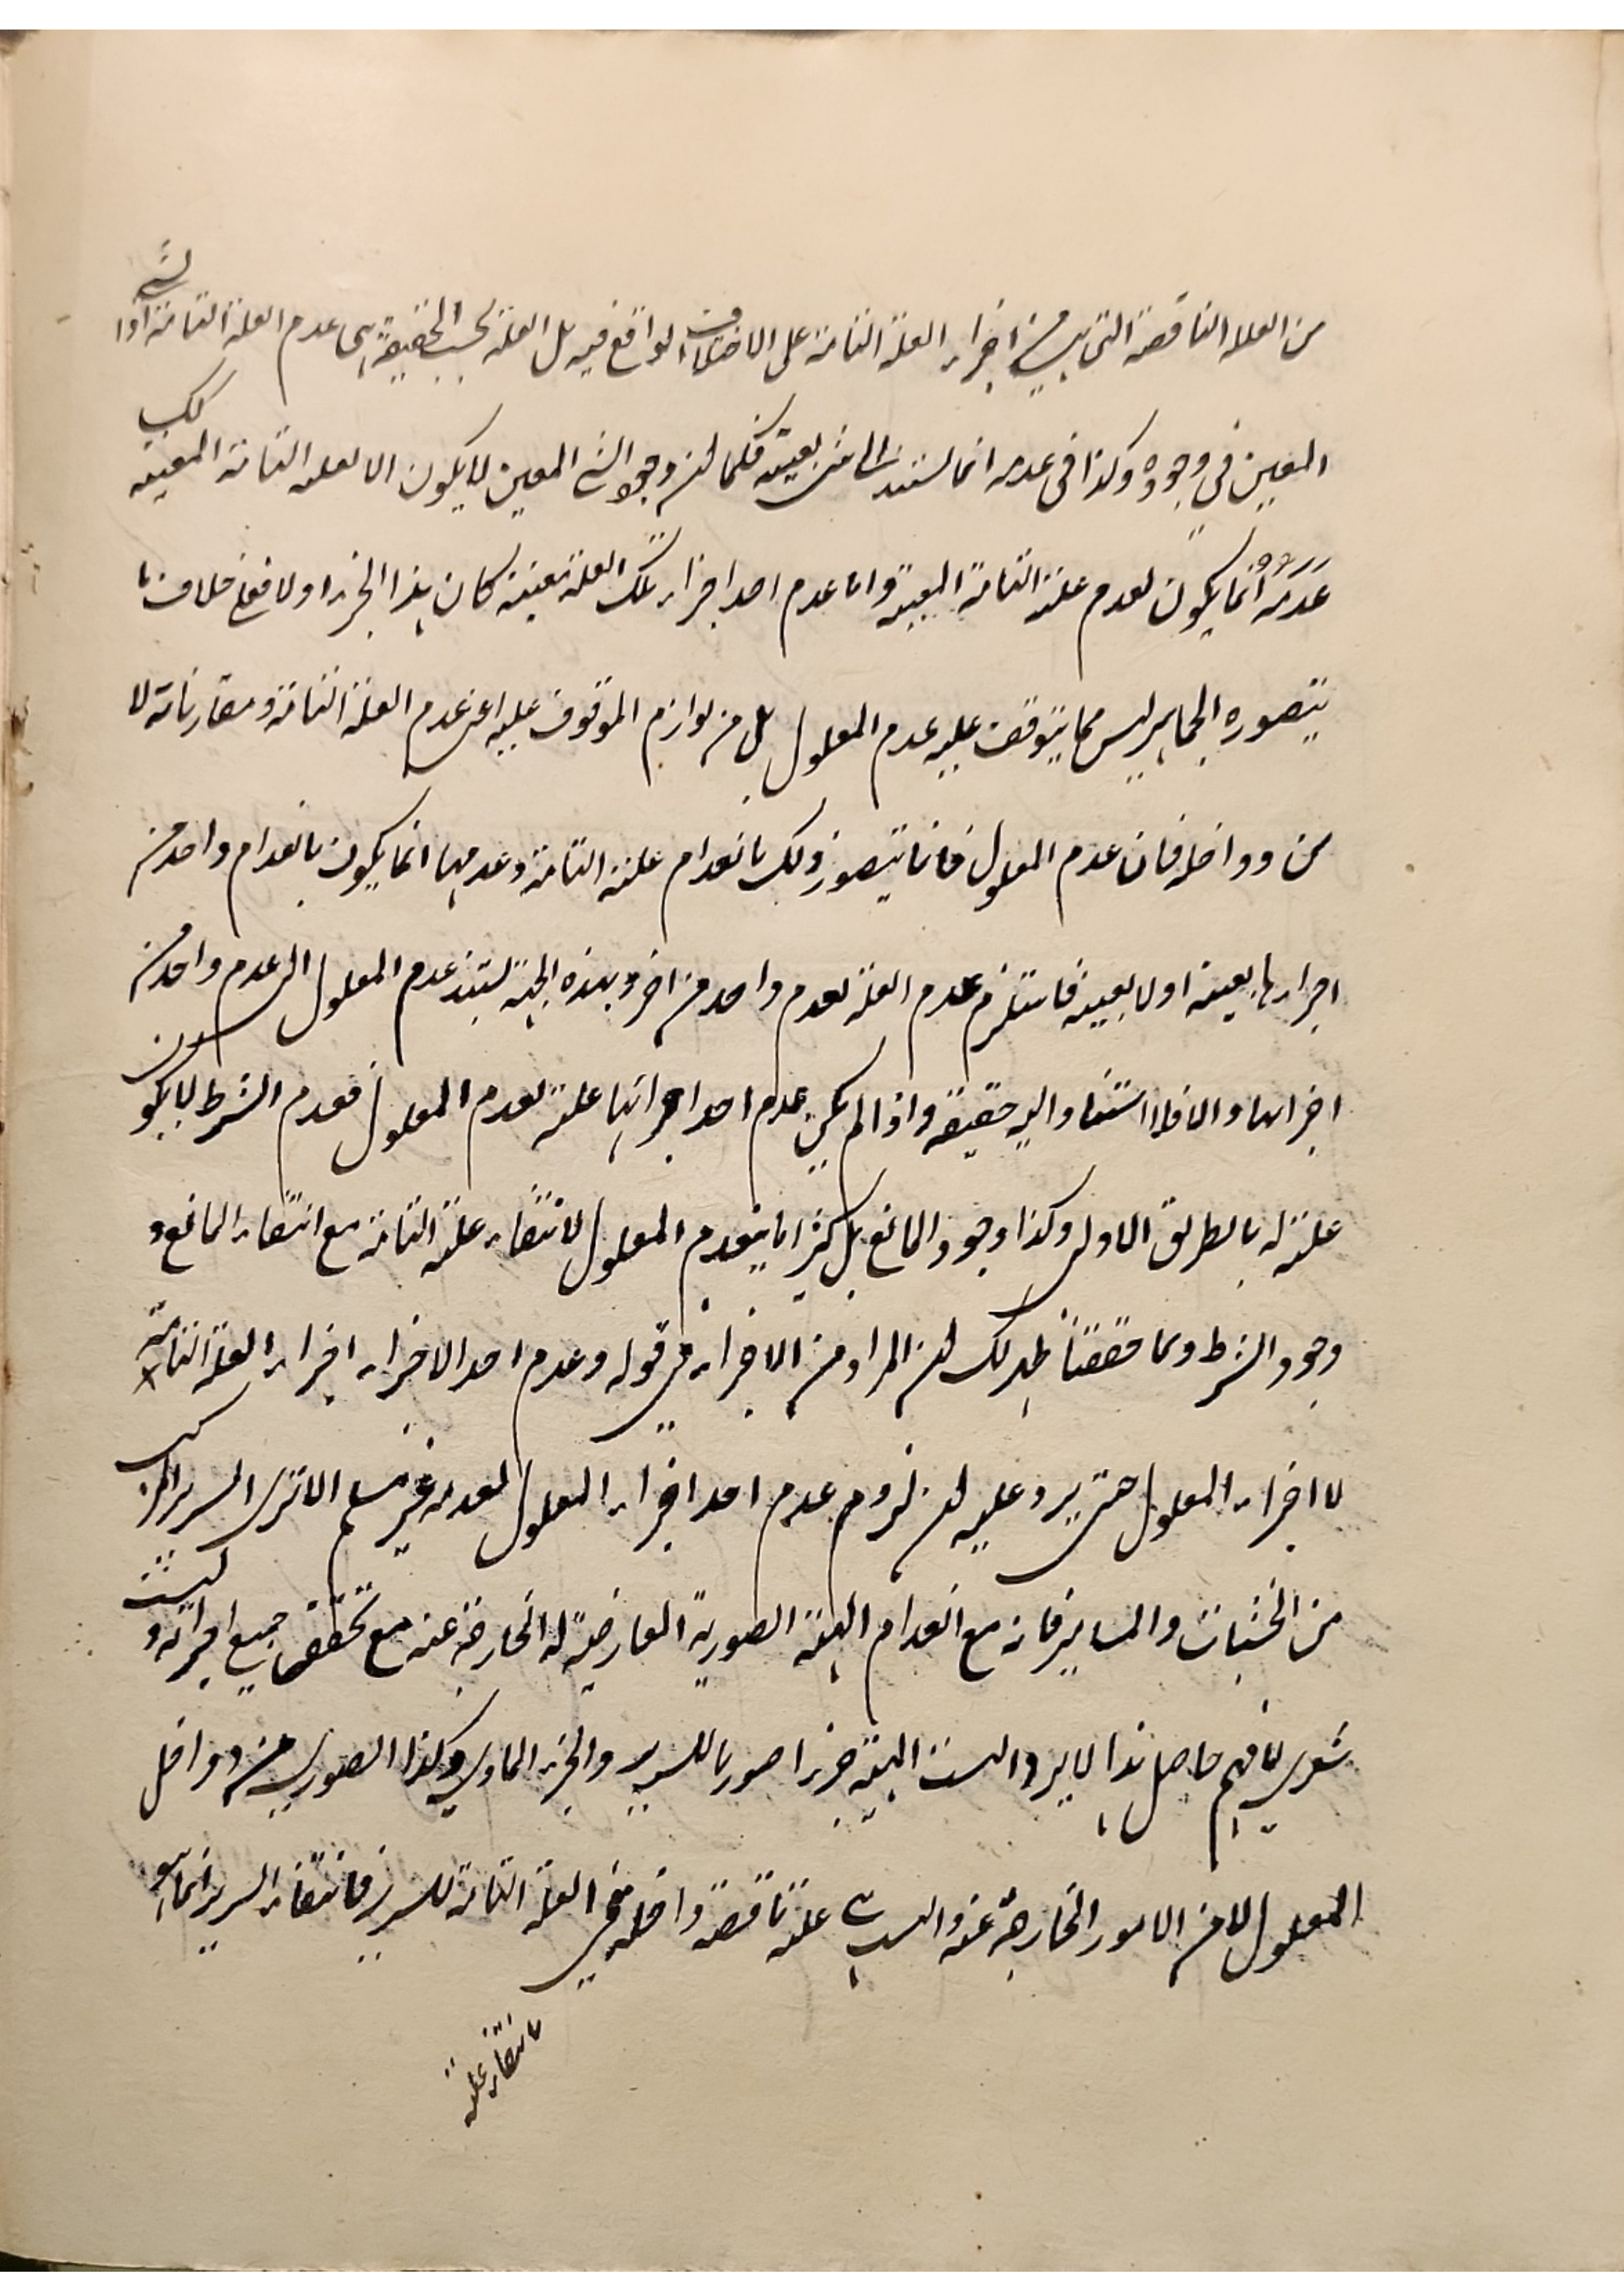 من العلة الناقصة التي هي من اجزاء العلة التامة على الاختلاف الواقع فيه بل العلة بحسب الحقيقة هي عدم العلة التامة اذا الشيء
المعين في وجوده وكذا في عدمه انما يستند الى شيء بعينه فكما ان وجود الشيء المعين لا يكون الا لعلته التامة المعينة كك
عدمه انما يكون لعدم علته التامة المعينة واما عدم احد اجزاء تلك العلة بعينه كان هذا الجزء اولا فعلى خلاف ما
يتصوره الجماهير ليس مما يتوقف عليه عدم المعلول بل من لوازم الموقوف عليه اعنى عدم العلة التامة ومقارناته لا
من دواخله فان عدم المعلول فانما يتصور ذلك بانعدام علته التامة وعدمها انما يكون بانعدام واحد من
اجزائها بعينه اولا بعينه فاستلزم عدم العلة لعدم واحد من اخر وبهذه الجهة يستند عدم المعلول الى عدم واحد من
اجزائها والا فلا استناد اليه حقيقة واذا لم يكن عدم احد اجزائها علة لعدم المعلول فعدم الشرط لا يكون
علته له بالطريق الاولى وكذا وجود المانع بل كثيرا ما ينعدم المعلول لانتفاء علته التامة مع انتفاء المانع و
وجود الشرط ومما حققنا ظهر لك ان المراد من الاجزاء في قوله وعدم احد الاجزاء اجزاء العلة التامة
لا اجزاء المعلول حتى يرد عليه ان لزوم عدم احد اجزاء المعلول لعدمه غير مسلم الا ترى السرير المركب
من الخشبات والمسامير فانه مع انعدام الهيئة الصورية العارضية له الخارجة عنه مع تحقق جميع اجزائه و
شعرى ما فهم حاصل هذا الايراد اليست الهيئة جزءا صوريا للسرير والجزء المادي وكذا الصوري من دواخل
المعلول لا من الامور الخارجة عنه واليست علة ناقصة داخلة في العلة التامة للسرير فانتفاء السرير انما هو
بانتفاء علته